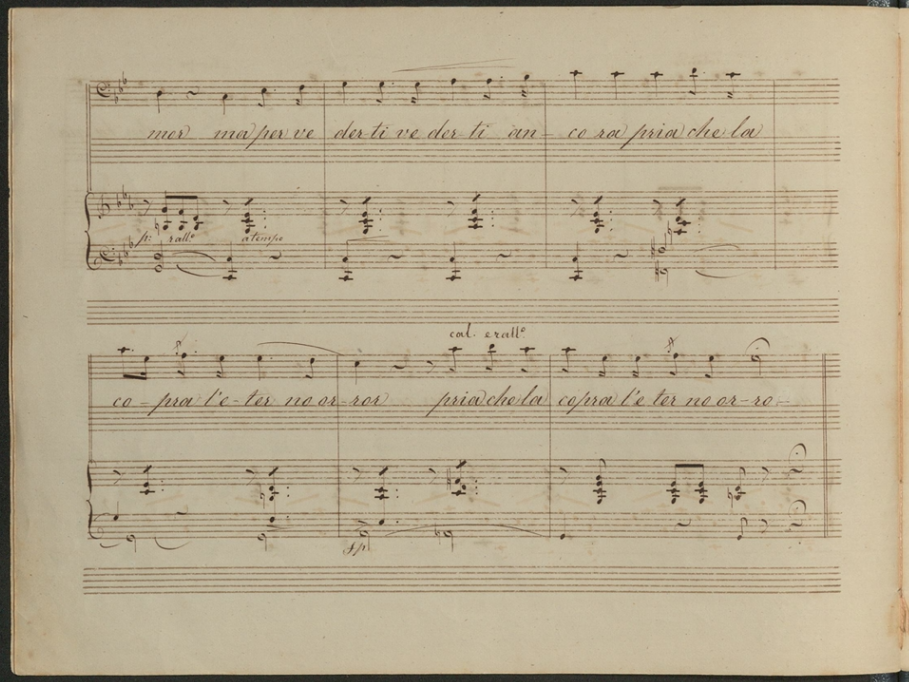 mor ma per ve der-ti ve der-ti an- co ra pria che la
p: rallo a tempo
cal. e rallo
co-pra l'e-ter no or-ror pria che la copra l'e ter no or-ro-
sfp